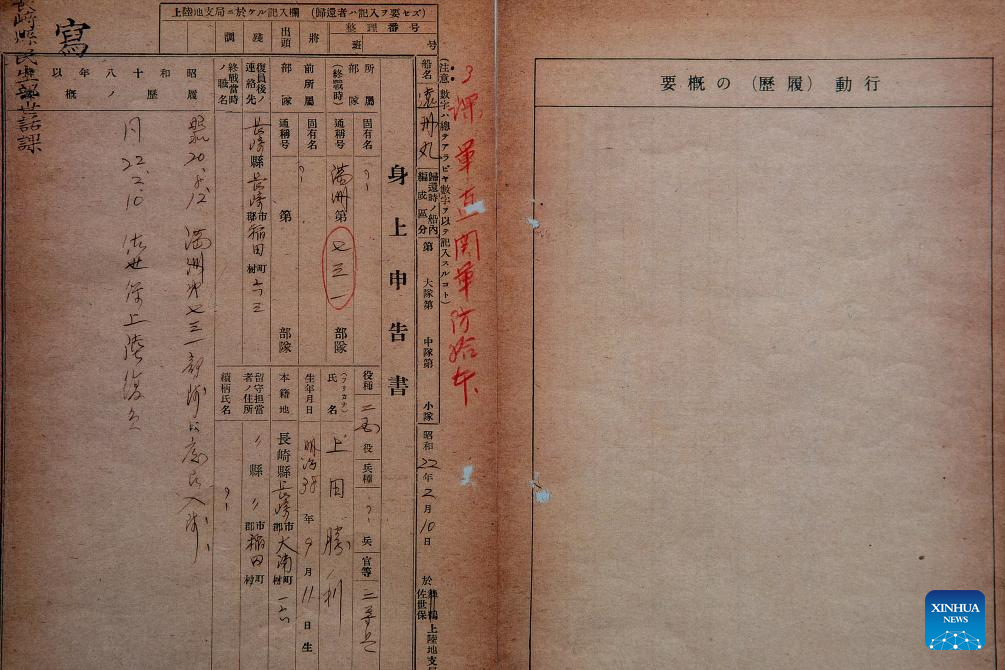 行動（履歴）の概要
3
関軍防
（注意）数字ハ總テアラビヤ数字ヲ以テ記入スルコト）
上陸地支局ニ於ケル記入欄（歸還者ハ記入ヲ要セズ）
整理番号
班　号
將
出頭
残
調
船名
歸還時ノ船内編成区分
第　大隊第　中隊第　小隊
昭和22年2月10日
於
佐世保
上陸地支
身上申告書
所属部隊（終戦時）
固有名
通稱号
満洲第七三一部隊
前所属部隊
固有名
通稱号
第　部隊
復員後ノ連絡先
長崎縣長崎市郡稲田町村六三
終戦當時ノ職名
役種
役
兵種
兵
官等
（フリガナ）
氏名
上田勝利
生年月日
明治38年9月11日生
本籍地
長崎縣長崎市郡大浦町村
留守担當者ノ住所
〃縣〃市郡稲田町村
續柄氏名
昭和十八年以
履歴ノ概
昭和20.5.12 満洲第七三一部隊
22.2.10 佐世保上陸復員
寫
長崎縣民生部世話課
XINHUA
NEWS